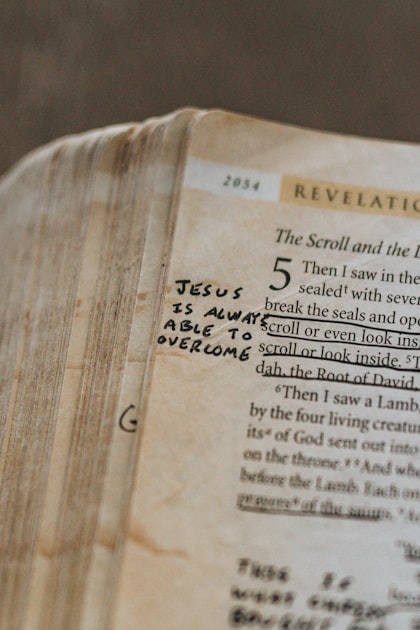 2054 REVELATIO
The Scroll and the L
5 Then I saw in the
sealedᵗ with seve
break the seals and ope
scroll or even look ins
scroll or look inside. ⁵T
dah, the Root of David,
⁶Then I saw a Lamb,
by the four living creatur
itsᵃ of God sent out into
on the throne. And whe
before the Lamb. Each on
prayers of the saints.
JESUS
IS ALWAYS
ABLE TO
OVERCOME
G